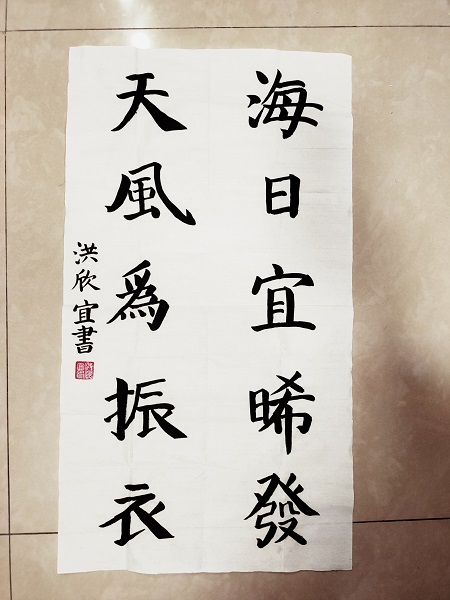 海日宜晞發
天風為振衣
洪欣宜書